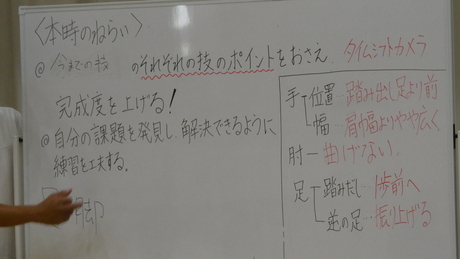 〈本時のねらい〉
◎今までの技 のそれぞれの技のポイントをおさえ
完成度を上げる!
◎自分の課題を発見し、解決できるように
練習を工夫する。
タイムシフトカメラ
手 位置…踏み出し足より前
幅…肩幅よりやや広く
肘―曲げない。
足 踏みだし…1歩前へ
逆の足…振り上げる